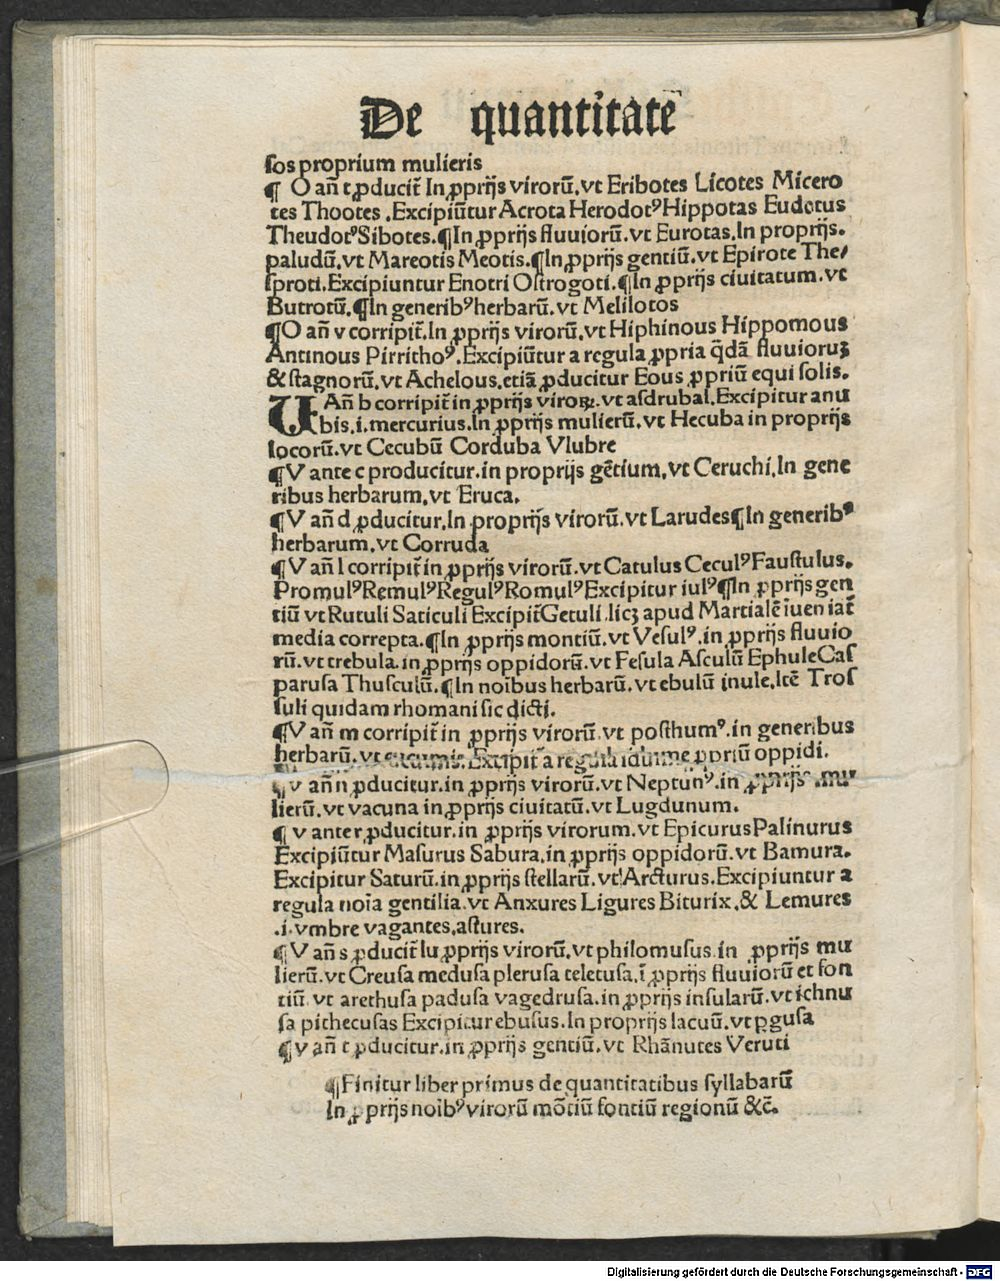 De quantitate
sos proprium mulieris
¶ O an̄ t ꝓducit᷑ In ꝓprijs virorū.vt Eribotes Licotes Micero
tes Thootes .Excipiūtur Acrota Herodotꝰ Hippotas Eudotus
Theudotꝰ Sibotes.¶In ꝓprijs fluuiorū.vt Eurotas.In proprijs.
paludū.vt Mareotis Meotis.¶In ꝓprijs gentiū.vt Epirote The/
sproti.Excipiuntur Enotri Ostrogoti.¶In ꝓprijs ciuitatum.vt
Butrotū.¶In generibꝰ herbarū.vt Melilotos
¶O an̄ v corripit᷑.In ꝓprijs virorū.vt Hiphinous Hippomous
Antinous Pirrithoꝰ.Excipiūtur a regula ꝓpria q̄dā fluuioruꝫ
& stagnorū.vt Achelous.etiā ꝓducitur Eous ꝓpriū equi solis.
V An̄ b corripit᷑ in ꝓprijs viroꝝ.vt asdrubal.Excipitur anu
bis.i.mercurius.In ꝓprijs mulierū.vt Hecuba in proprijs
locorū.vt Cecubū Corduba Vlubre
¶V ante c producitur.in proprijs gētium.vt Ceruchi.In gene
ribus herbarum.vt Eruca.
¶V an̄ d ꝓducitur.In proprijs virorū.vt Larudes¶In generibꝰ
herbarum.vt Corruda
¶V an̄ l corripit᷑ in ꝓprijs virorū.vt Catulus Ceculꝰ Faustulus.
Promulꝰ Remulꝰ Regulꝰ Romulꝰ Excipitur iulꝰ ¶In ꝓprijs gen
tiū vt Rutuli Saticuli Excipit᷑ Getuli.licꝫ apud Martialē iueniat᷑
media correpta.¶In ꝓprijs montiū.vt Vesulꝰ.in ꝓprijs fluuio
rū.vt trebula.in ꝓprijs oppidorū.vt Fesula Asculū Ephule Cas
parusa Thusculū.¶In noībus herbarū.vt ebulū inule.Itē Tros
suli quidam rhomani sic dicti.
¶V an̄ m corripit᷑ in ꝓprijs virorū.vt posthumꝰ.in generibus
herbarū.vt cucumis.Excipit᷑ a regula idume ꝓpriū oppidi.
¶v an̄ n ꝓducitur.in ꝓprijs virorū.vt Neptunꝰ.in ꝓprijs mu
lierū.vt vacuna in ꝓprijs ciuitatū.vt Lugdunum.
¶ v ante r ꝓducitur.in ꝓprijs virorum.vt Epicurus Palinurus
Excipiūtur Masurus Sabura.in ꝓprijs oppidorū.vt Bamura.
Excipitur Saturū.in ꝓprijs stellarū.vt Arcturus.Excipiuntur a
regula noīa gentilia.vt Anxures Ligures Biturix.& Lemures
.i.vmbre vagantes.astures.
¶V an̄ s ꝓducit᷑ Iu ꝓprijs virorū.vt philomusus.in ꝓprijs mu
lierū.vt Creusa medusa plerusa teletusa.ī ꝓprijs fluuiorū et fon
tiū vt arethusa padusa vagedrusa.in ꝓprijs insularū.vt ichnu
sa pithecusas Excipitur ebusus.In proprijs lacuū.vt ꝑgusa
¶v an̄ t ꝓducitur.in ꝓprijs gentiū.vt Rhānutes Veruti
¶Finitur liber primus de quantitatibus syllabarū
In ꝓprijs noībꝰ virorū mōtiū fontiū regionū &c̄.
Digitalisierung gefördert durch die Deutsche Forschungsgemeinschaft - DFG